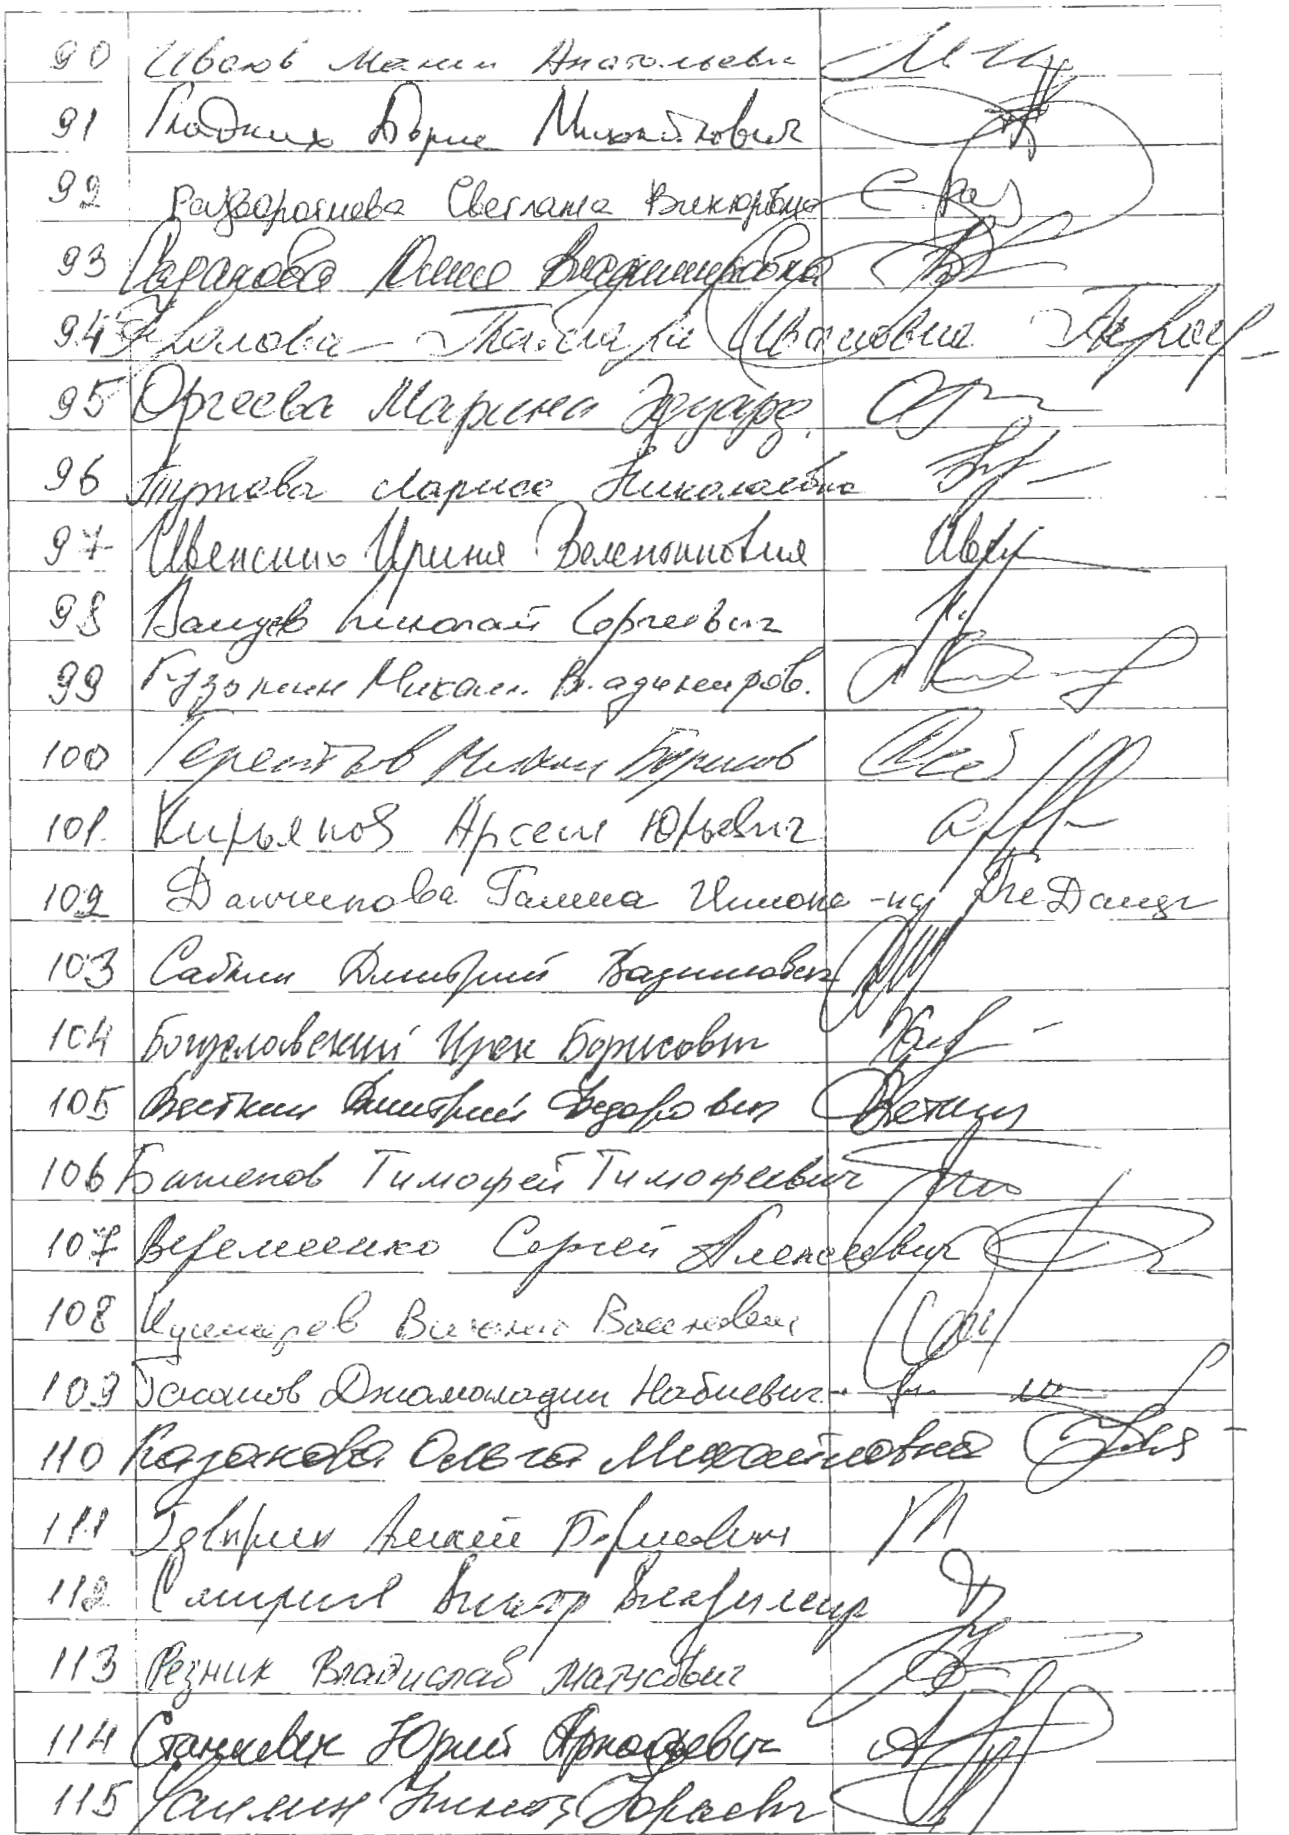 90 Иванов Максим Анатольевич
91 Гладких Борис Михайлович
92 Разворотнева Светлана Викторовна
93 Влади­мировна
94 Фролова Тамара Ивановна
95 Оргеева Марина Эдуард.
96 Тутова Лариса Николаевна
97 Ивенских Ирина Валентиновна
98 Валуев Николай Сергеевич
99 Кузьмин Михаил Владимиров.
100 Терентьев Михаил Борисов
101. Кирьянов Арсен Юрьевич
102 Данчикова Галина Инноке-на
103 Саблин Дмитрий Вадимович
104 Богуславский Ирек Борисович
105 Вяткин Дмитрий Федорович
106 Баженов Тимофей Тимофеевич
107 Веремеенко Сергей Алексеевич
108
109 Гасанов Джамаладин Набиевич
110 Казакова Ольга Михайловна
111 Гордеев
112 Виктор Владимир
113 Резник Владислав Матусович
114 Станкевич Юрий Аркадьевич
115 Чаплин Никита Юрьевич